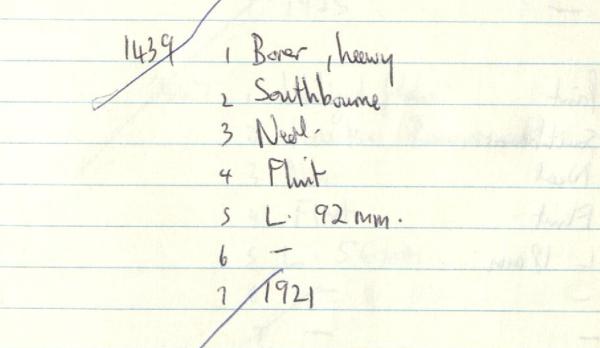 1439 1 Borer, heavy
2 Southbourne
3 Neol.
4 Flint
5 L. 92 mm.
6 –
7 1921